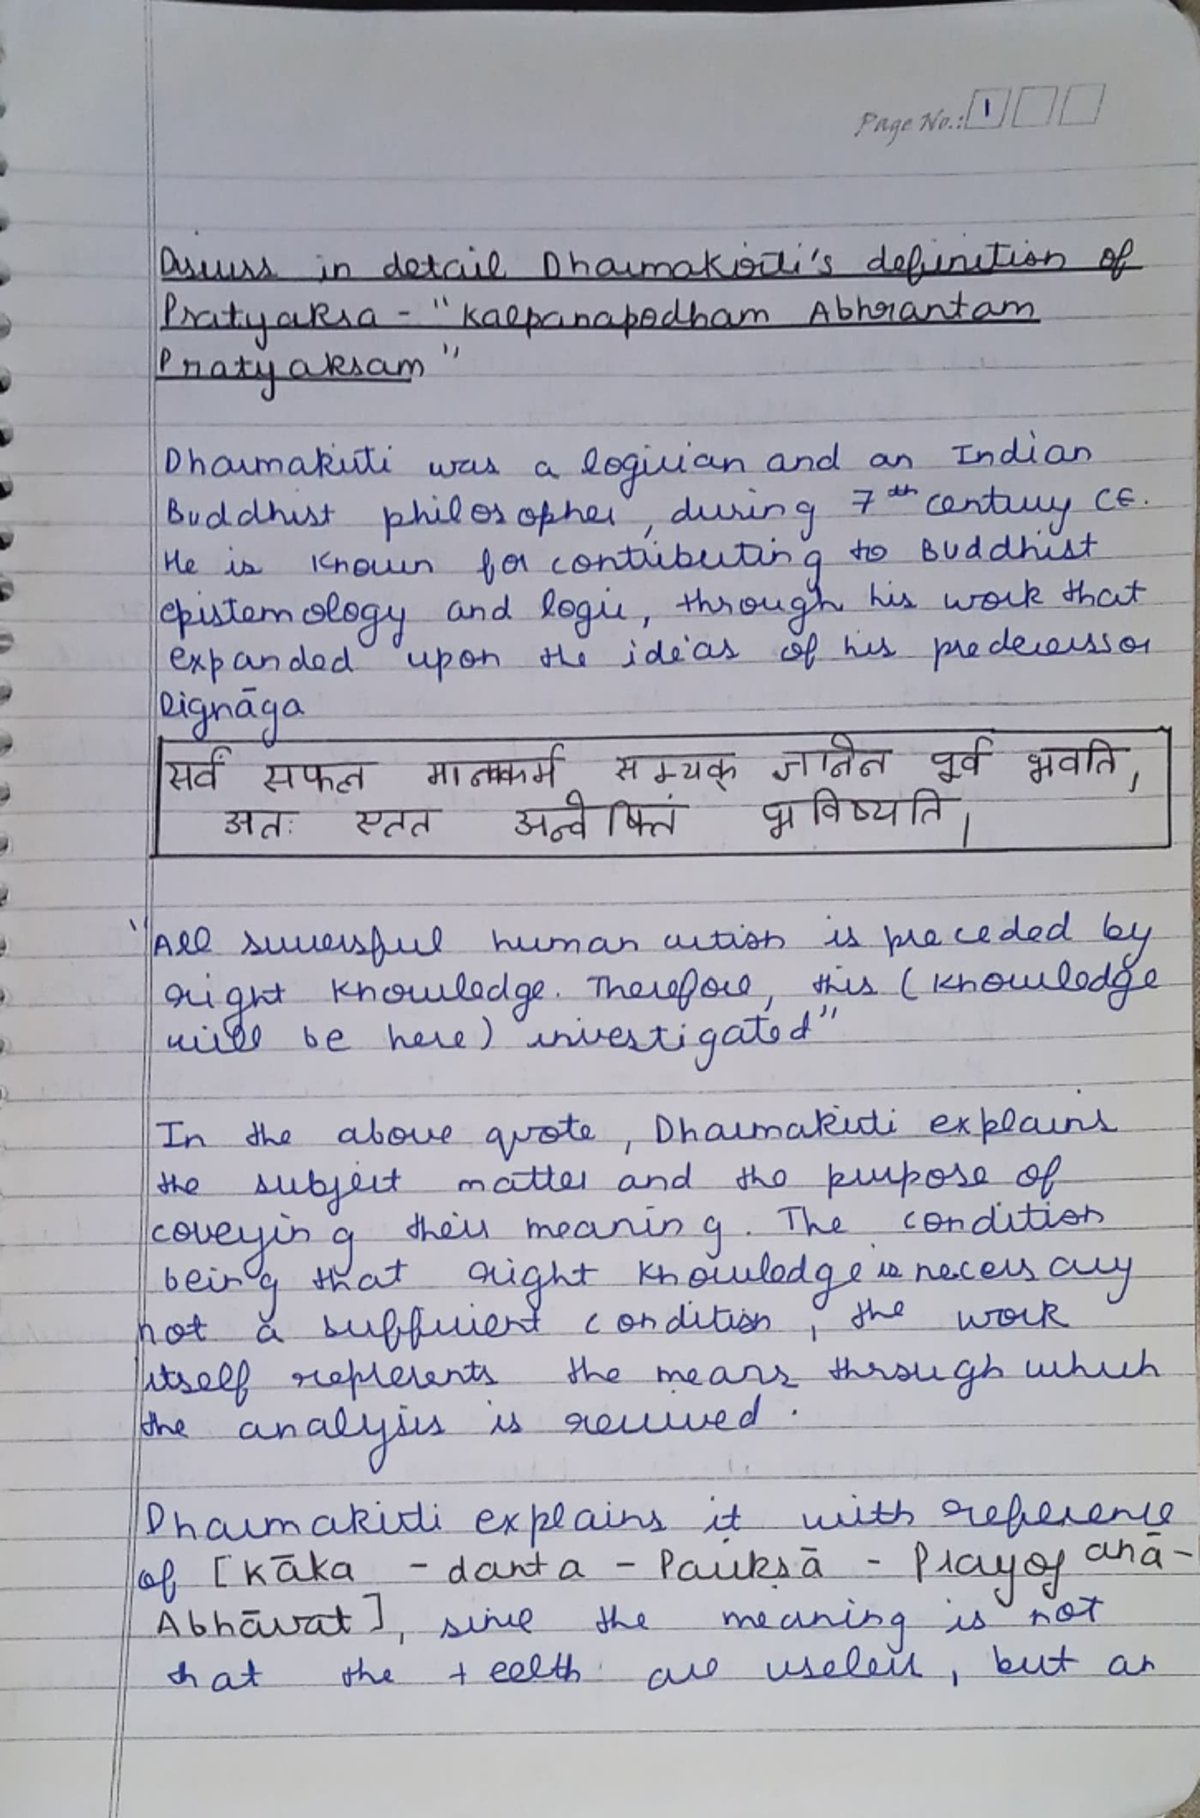 Page No.: 1
Discuss in detail Dharmakirti's definition of
Pratyaksa - "Kalpanapodham Abhrantam
Pratyaksam"
Dharmakirti was a logician and an Indian
Buddhist philosopher, during 7th century CE.
He is known for contributing to Buddhist
epistemology and logic, through his work that
expanded upon the ideas of his predecessor
Dignāga
सर्वं सफल मानवकर्म सम्यक् ज्ञानेन पूर्व भवति,
अतः एतत अन्वेषितं भविष्यति,
"All successful human action is preceded by
right knowledge. Therefore, this (knowledge
will be here) investigated"
In the above quote, Dharmakirti explains
the subject matter and the purpose of
coveying their meaning. The condition
being that right knowledge is necessary
not a sufficient condition, the work
itself represents the means through which
the analysis is revived.
Dharmakirti explains it with reference
of [Kāka - danta - Parikṣā - Prayojanā-
Abhāvat], since the meaning is not
that the teelth are useless, but an